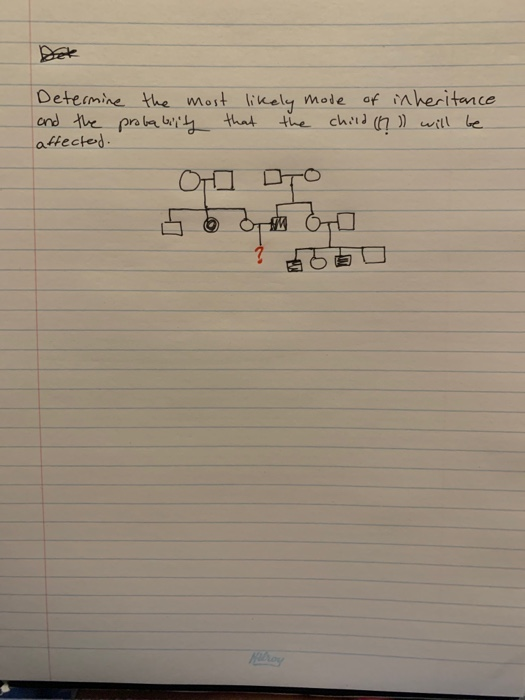 Determine the most likely mode of inheritance
and the probability that the child (?) will be
affected.
?
Hilroy